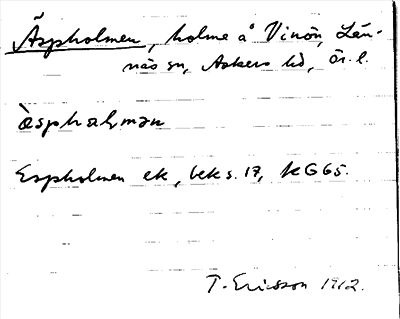 Äspholmen, holme å Vinön, Län-
näs sn, Askers hd, Ör. l.
Espholmen ek, bek s. 17, KG65.
T. Ericsson 1912.